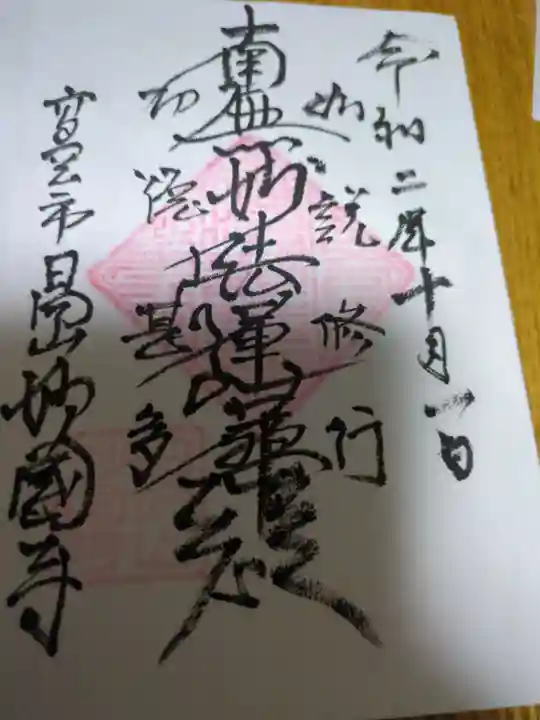 令和二年十月一日
如説修行
南無妙法蓮華経
功徳甚多
市 妙國寺